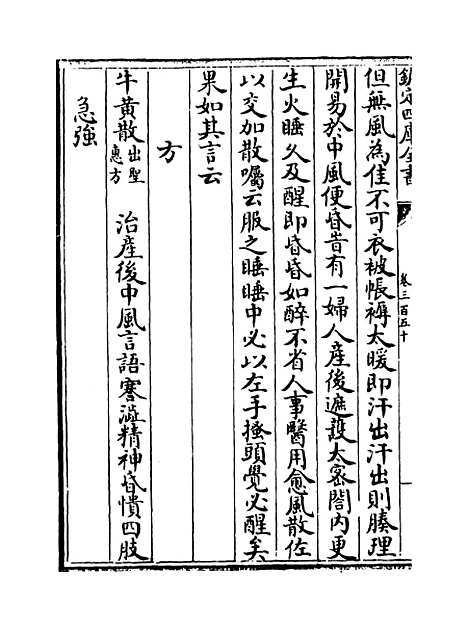 欽定四庫全書
卷三百五十
但無風為佳不可衣被帳褥太暖即汗出汗出則腠理
開易於中風便昏昔有一婦人産後遮護太密閤內更
生火睡久及醒即昏昏如醉不省人事醫用愈風散佐
以交加散囑云服之睡睡中必以左手搔頭覺必醒矣
果如其言云
方
牛黄散出聖惠方 治産後中風言語蹇澁精神昏憒四肢
急強